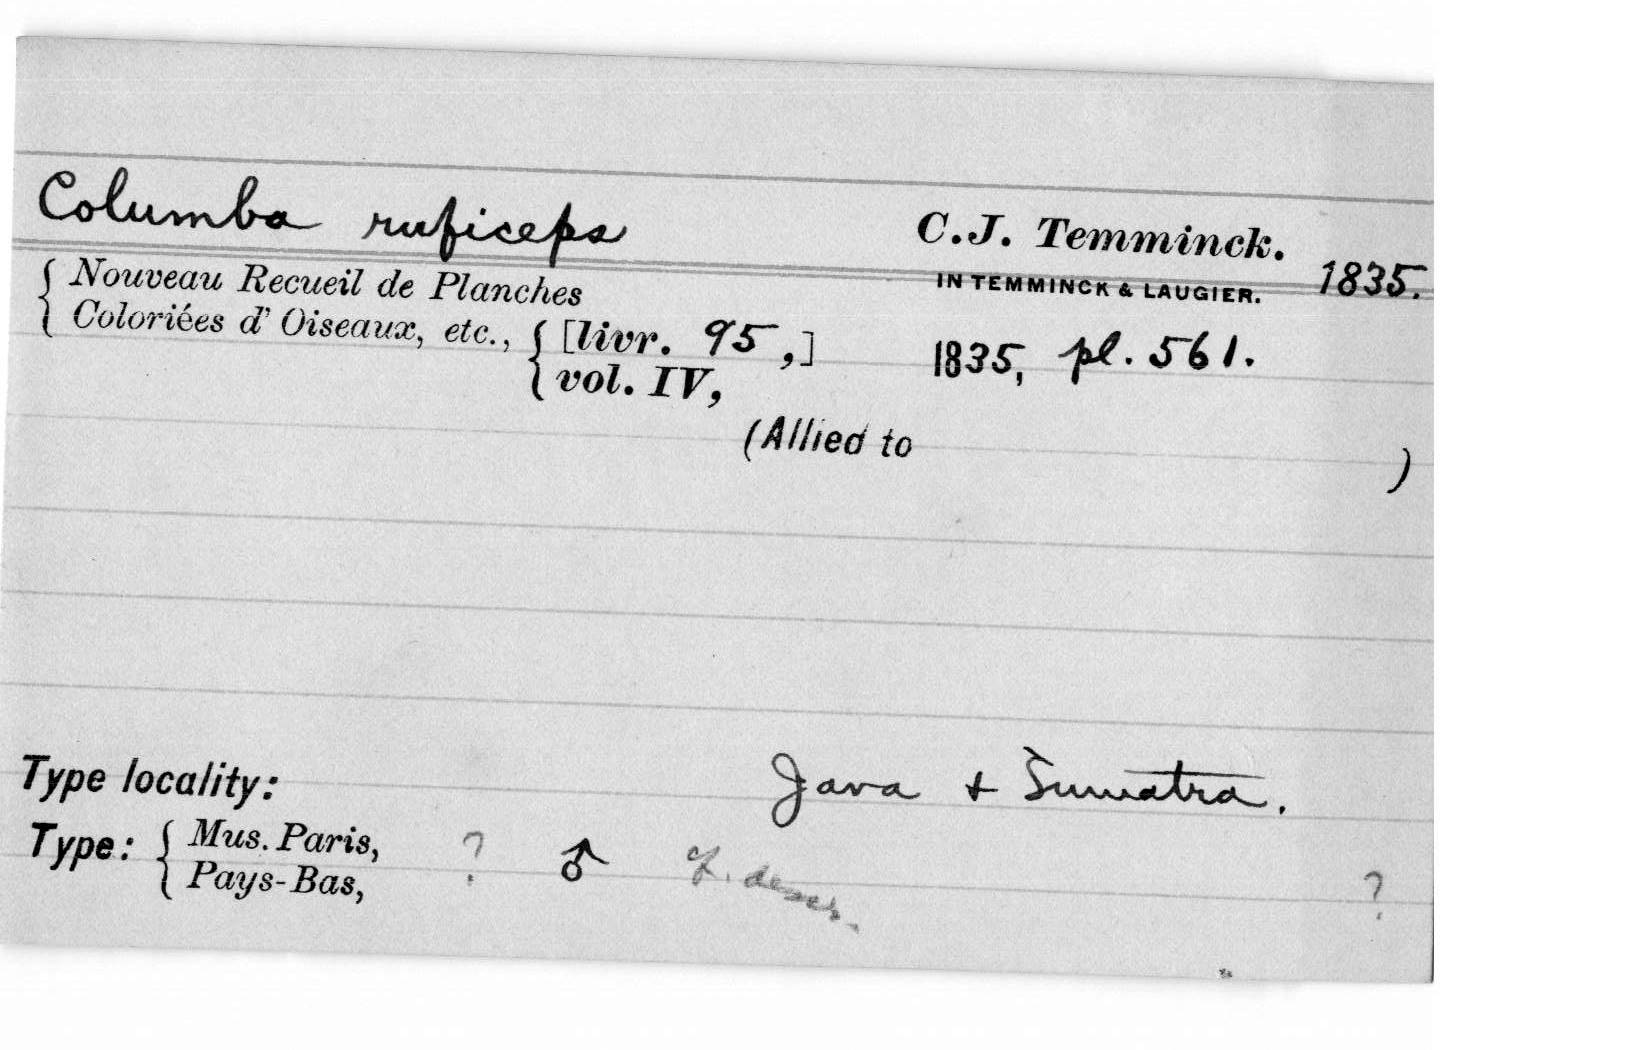 Columba ruficeps C.J. Temminck.
IN TEMMINCK & LAUGIER. 1835.
{ Nouveau Recueil de Planches
Coloriées d' Oiseaux, etc., { [livr. 95,] 1835, pl. 561.
vol. IV,
(Allied to )
Type locality: Java & Sumatra.
Type: { Mus. Paris, ? ♂ descr. ?
Pays-Bas,